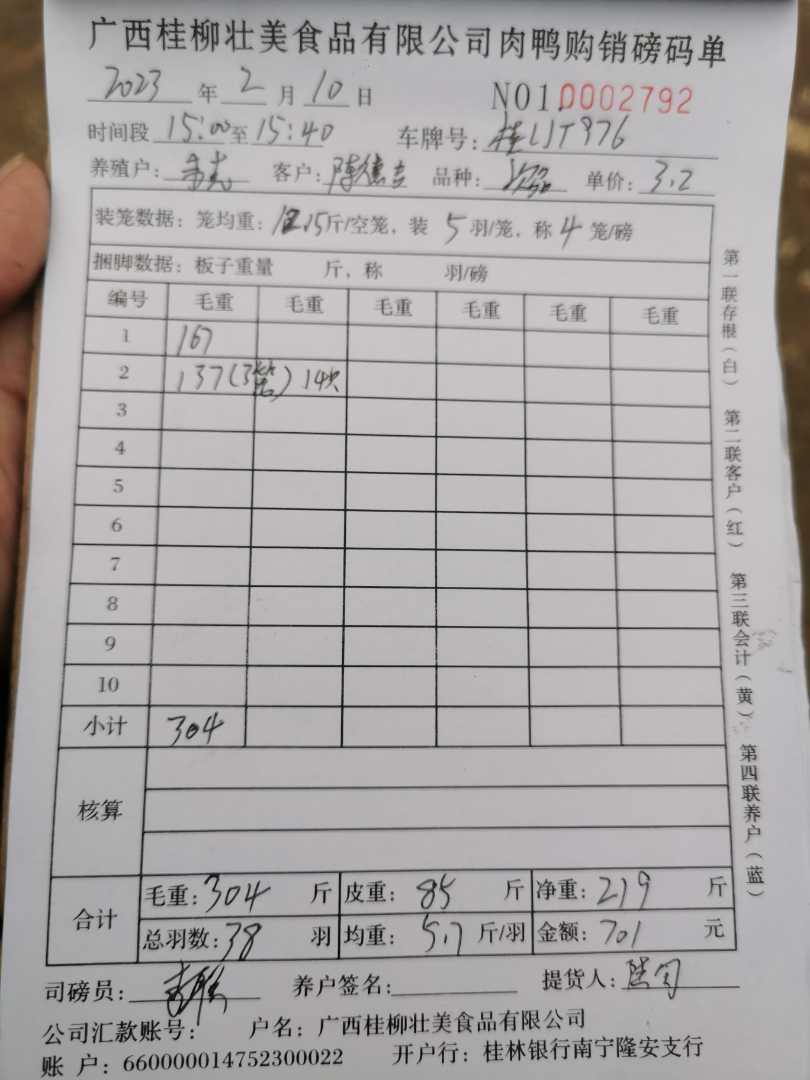 广西桂柳壮美食品有限公司肉鸭购销磅码单
2023 年 2 月 10 日 NO1 0002792
时间段 15:00 至 15:40 车牌号: 桂LJT976
养殖户: 客户: 陈 品种: 单价: 3.2
装笼数据: 笼均重: 12.15斤/空笼, 装 5 羽/笼, 称 4 笼/磅
捆脚数据: 板子重量 斤, 称 羽/磅
编号 毛重 毛重 毛重 毛重 毛重 毛重
1 167
2 137(3笼) 14只
3
4
5
6
7
8
9
10
小计 304
核算
合计 毛重: 304 斤 皮重: 85 斤 净重: 219 斤
总羽数: 38 羽 均重: 5.7 斤/羽 金额: 701 元
司磅员: 养户签名: 提货人:
公司汇款账号: 户名: 广西桂柳壮美食品有限公司
账 户: 660000014752300022 开户行: 桂林银行南宁隆安支行
第一联存根(白) 第二联客户(红) 第三联会计(黄) 第四联养户(蓝)